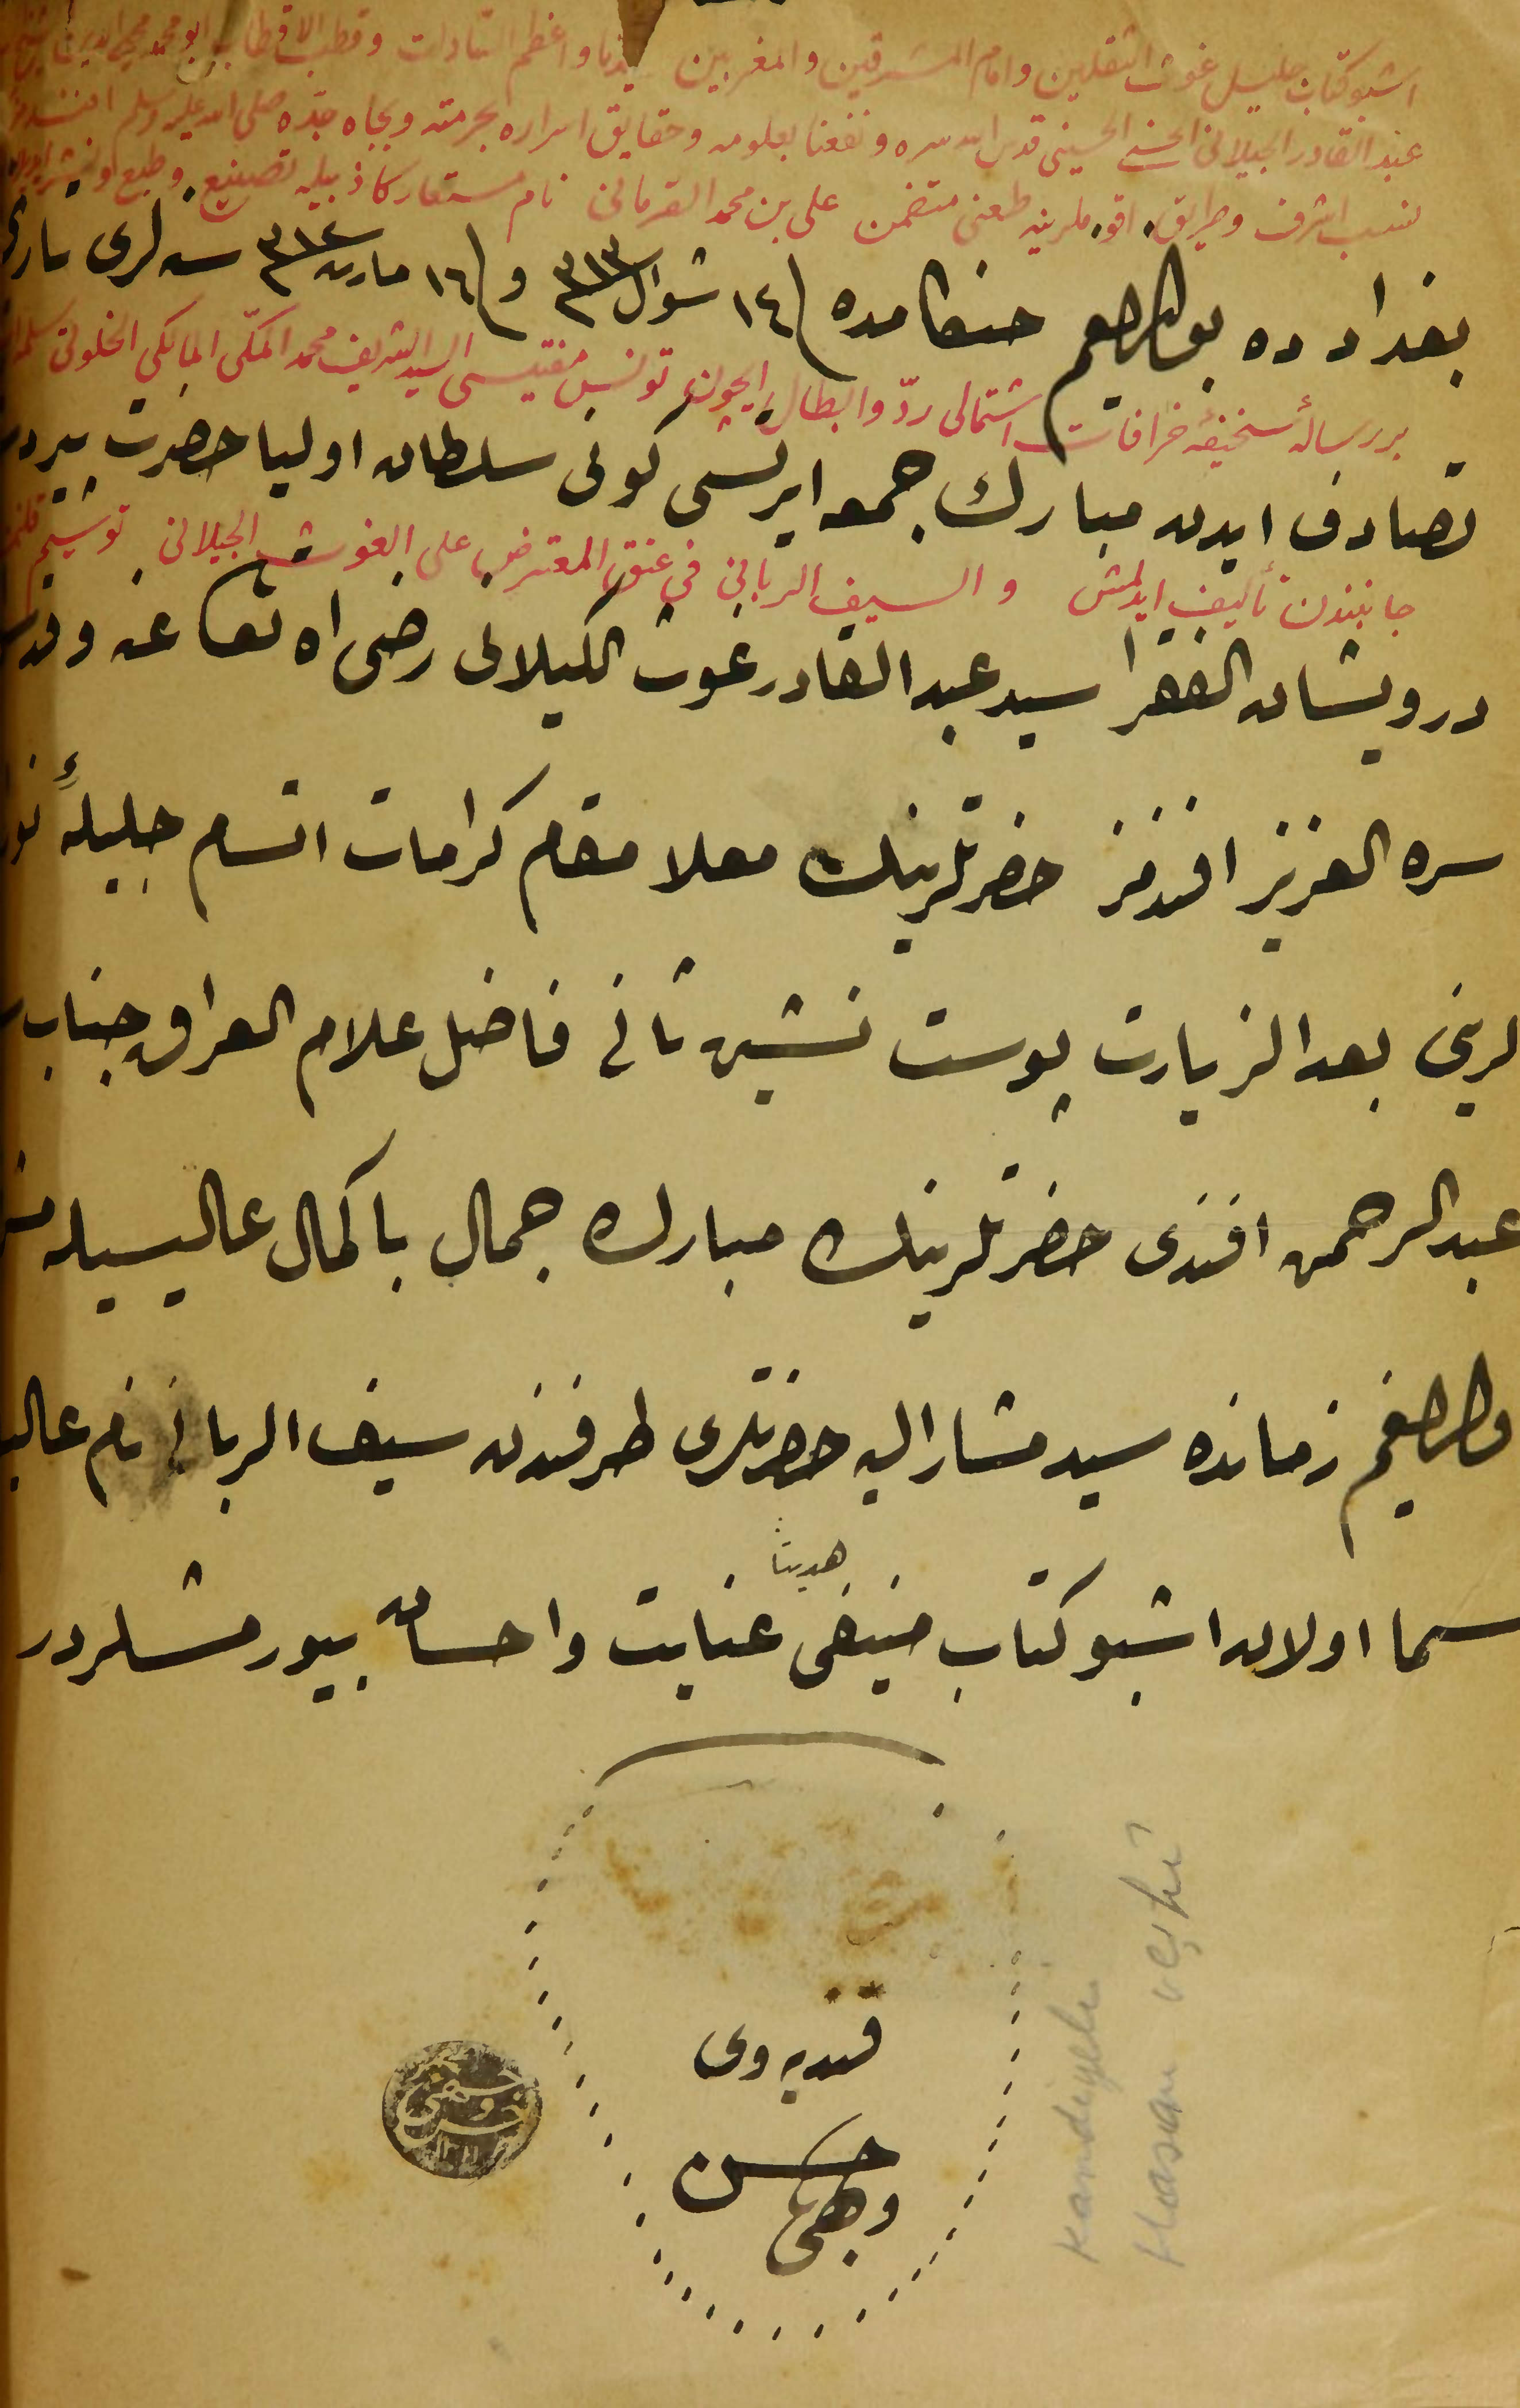 اشبو كتاب جليل غوث الثقلين وامام المشرقين والمغربين سيدنا واعظم السادات وقطب الاقطاب ابو محمد محي الدين
عبد القادر الجيلاني الحسني الحسيني قدس الله سره ونفعنا بعلومه وحقايق اسراره بحرمته وبجاه جده صلى الله عليه وسلم افندمز
نسب اشرف وطرايق اقوملرينه طعنى متضمن على بن محمد القرمانى نام مستعار كاذبيله تصنيع وطبع اولنه
بغداد ده بولنديغم هنكامده (١٤ شوال ٣١٣ و) ١٦ مارت ٣١٢ سنه لرى
بر رسالهٔ سخيفهٔ خرافات اشتمالى رد وابطال ايچون تونس مفتيسى السيد الشريف محمد المكى المالكى الخلوتى
تصادف ايدن مبارك جمعه ايرتسى كونى سلطان اوليا حضرت پير
جانبندن تأليف ايدلمش و السيف الربانى فى عنق المعترض على الغوث الجيلانى توشيم
درويشان الفقرا سيد عبد القادر غوث الكيلانى رضى الله تعالى عنه وقدس
سره العزيز افندمز حضرتلرينك معلا مقام كرامات اتسام جليلهٔ
لرينى بعد الزيارت پوست نشين ثانى فاضل علام العراق جناب
عبد الرحمن افندى حضرتلرينك مبارك جمال باكمال عاليسيله
زمانده سيد مشار اليه حضرتلرى طرفندن سيف الربانى نام
هديتاً
سما اولان اشبو كتاب منيفى عنايت واحسان بيورمشلردر
قنديه وى
حسن
وجهى
Kandiyeli
Hasan veçhî